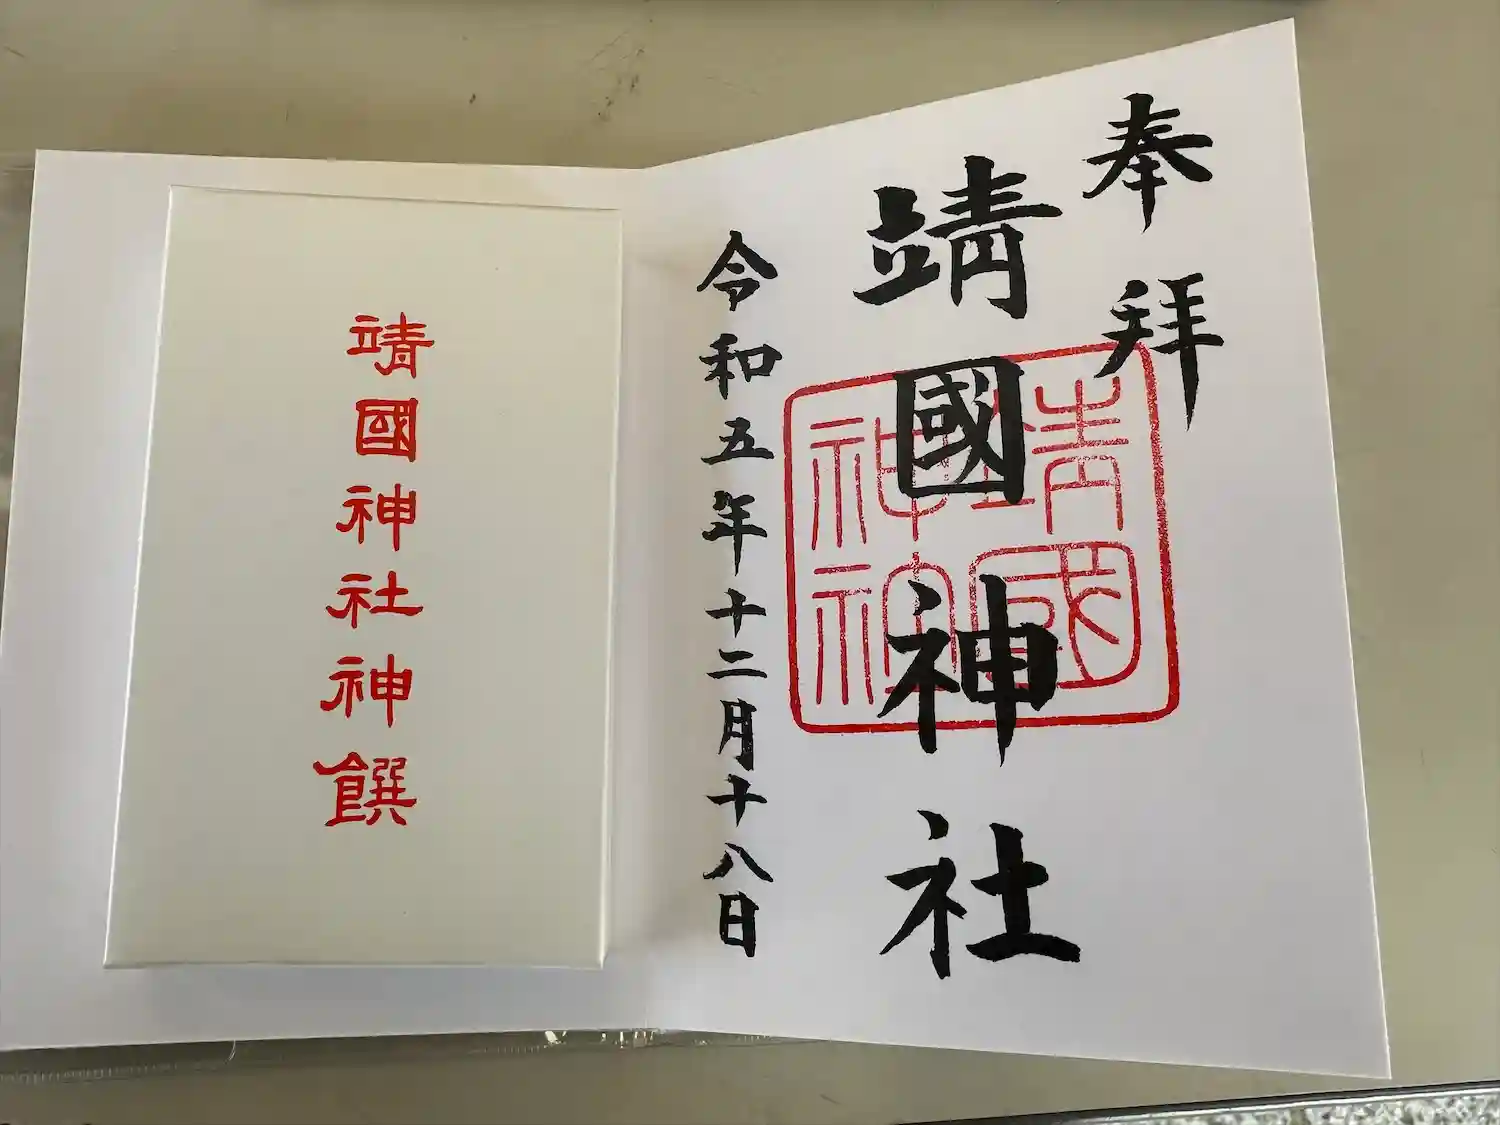 奉拝
靖國神社
靖國
神社
令和五年十二月十八日
靖國神社神饌